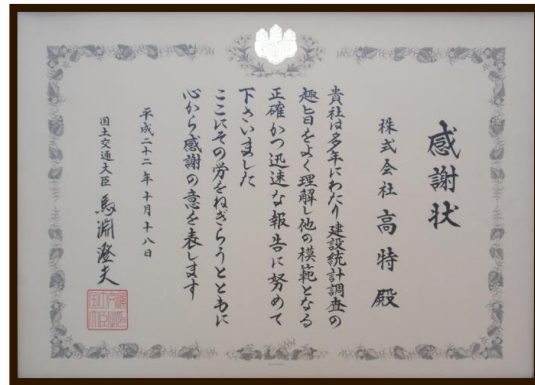 感謝状
株式会社 高特 殿
貴社は多年にわたり建設統計調査の
趣旨をよく理解し他の模範となる
正確かつ迅速な報告に努めて
下さいました
ここにその労をねぎらうとともに
心から感謝の意を表します
平成二十二年十月十八日
国土交通大臣 馬淵澄夫